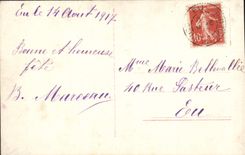 Eu le 14 Aout 1917
Bonne et heureuse
fête
B. Maresan
Mme Marie Bellvallée
40 Rue Pasteur
Eu
10